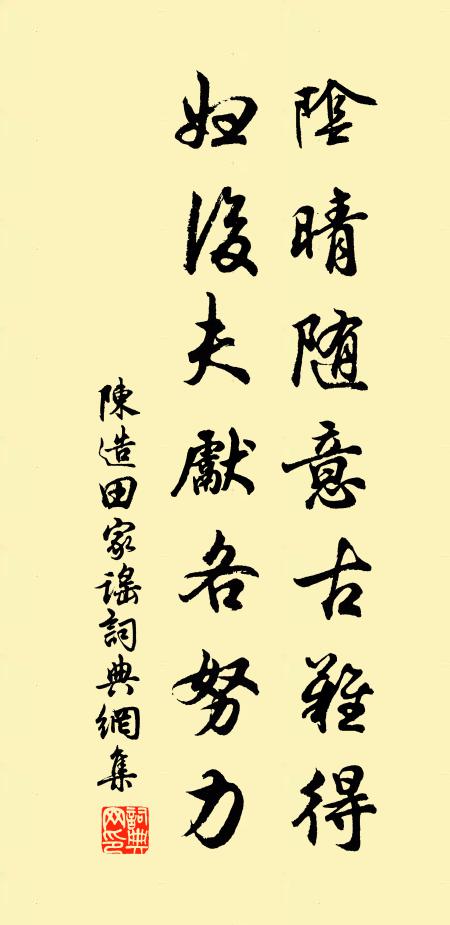 陰晴随意古難得
妇後夫獻各努力
陳造田家谣詞典網集
詞典网印